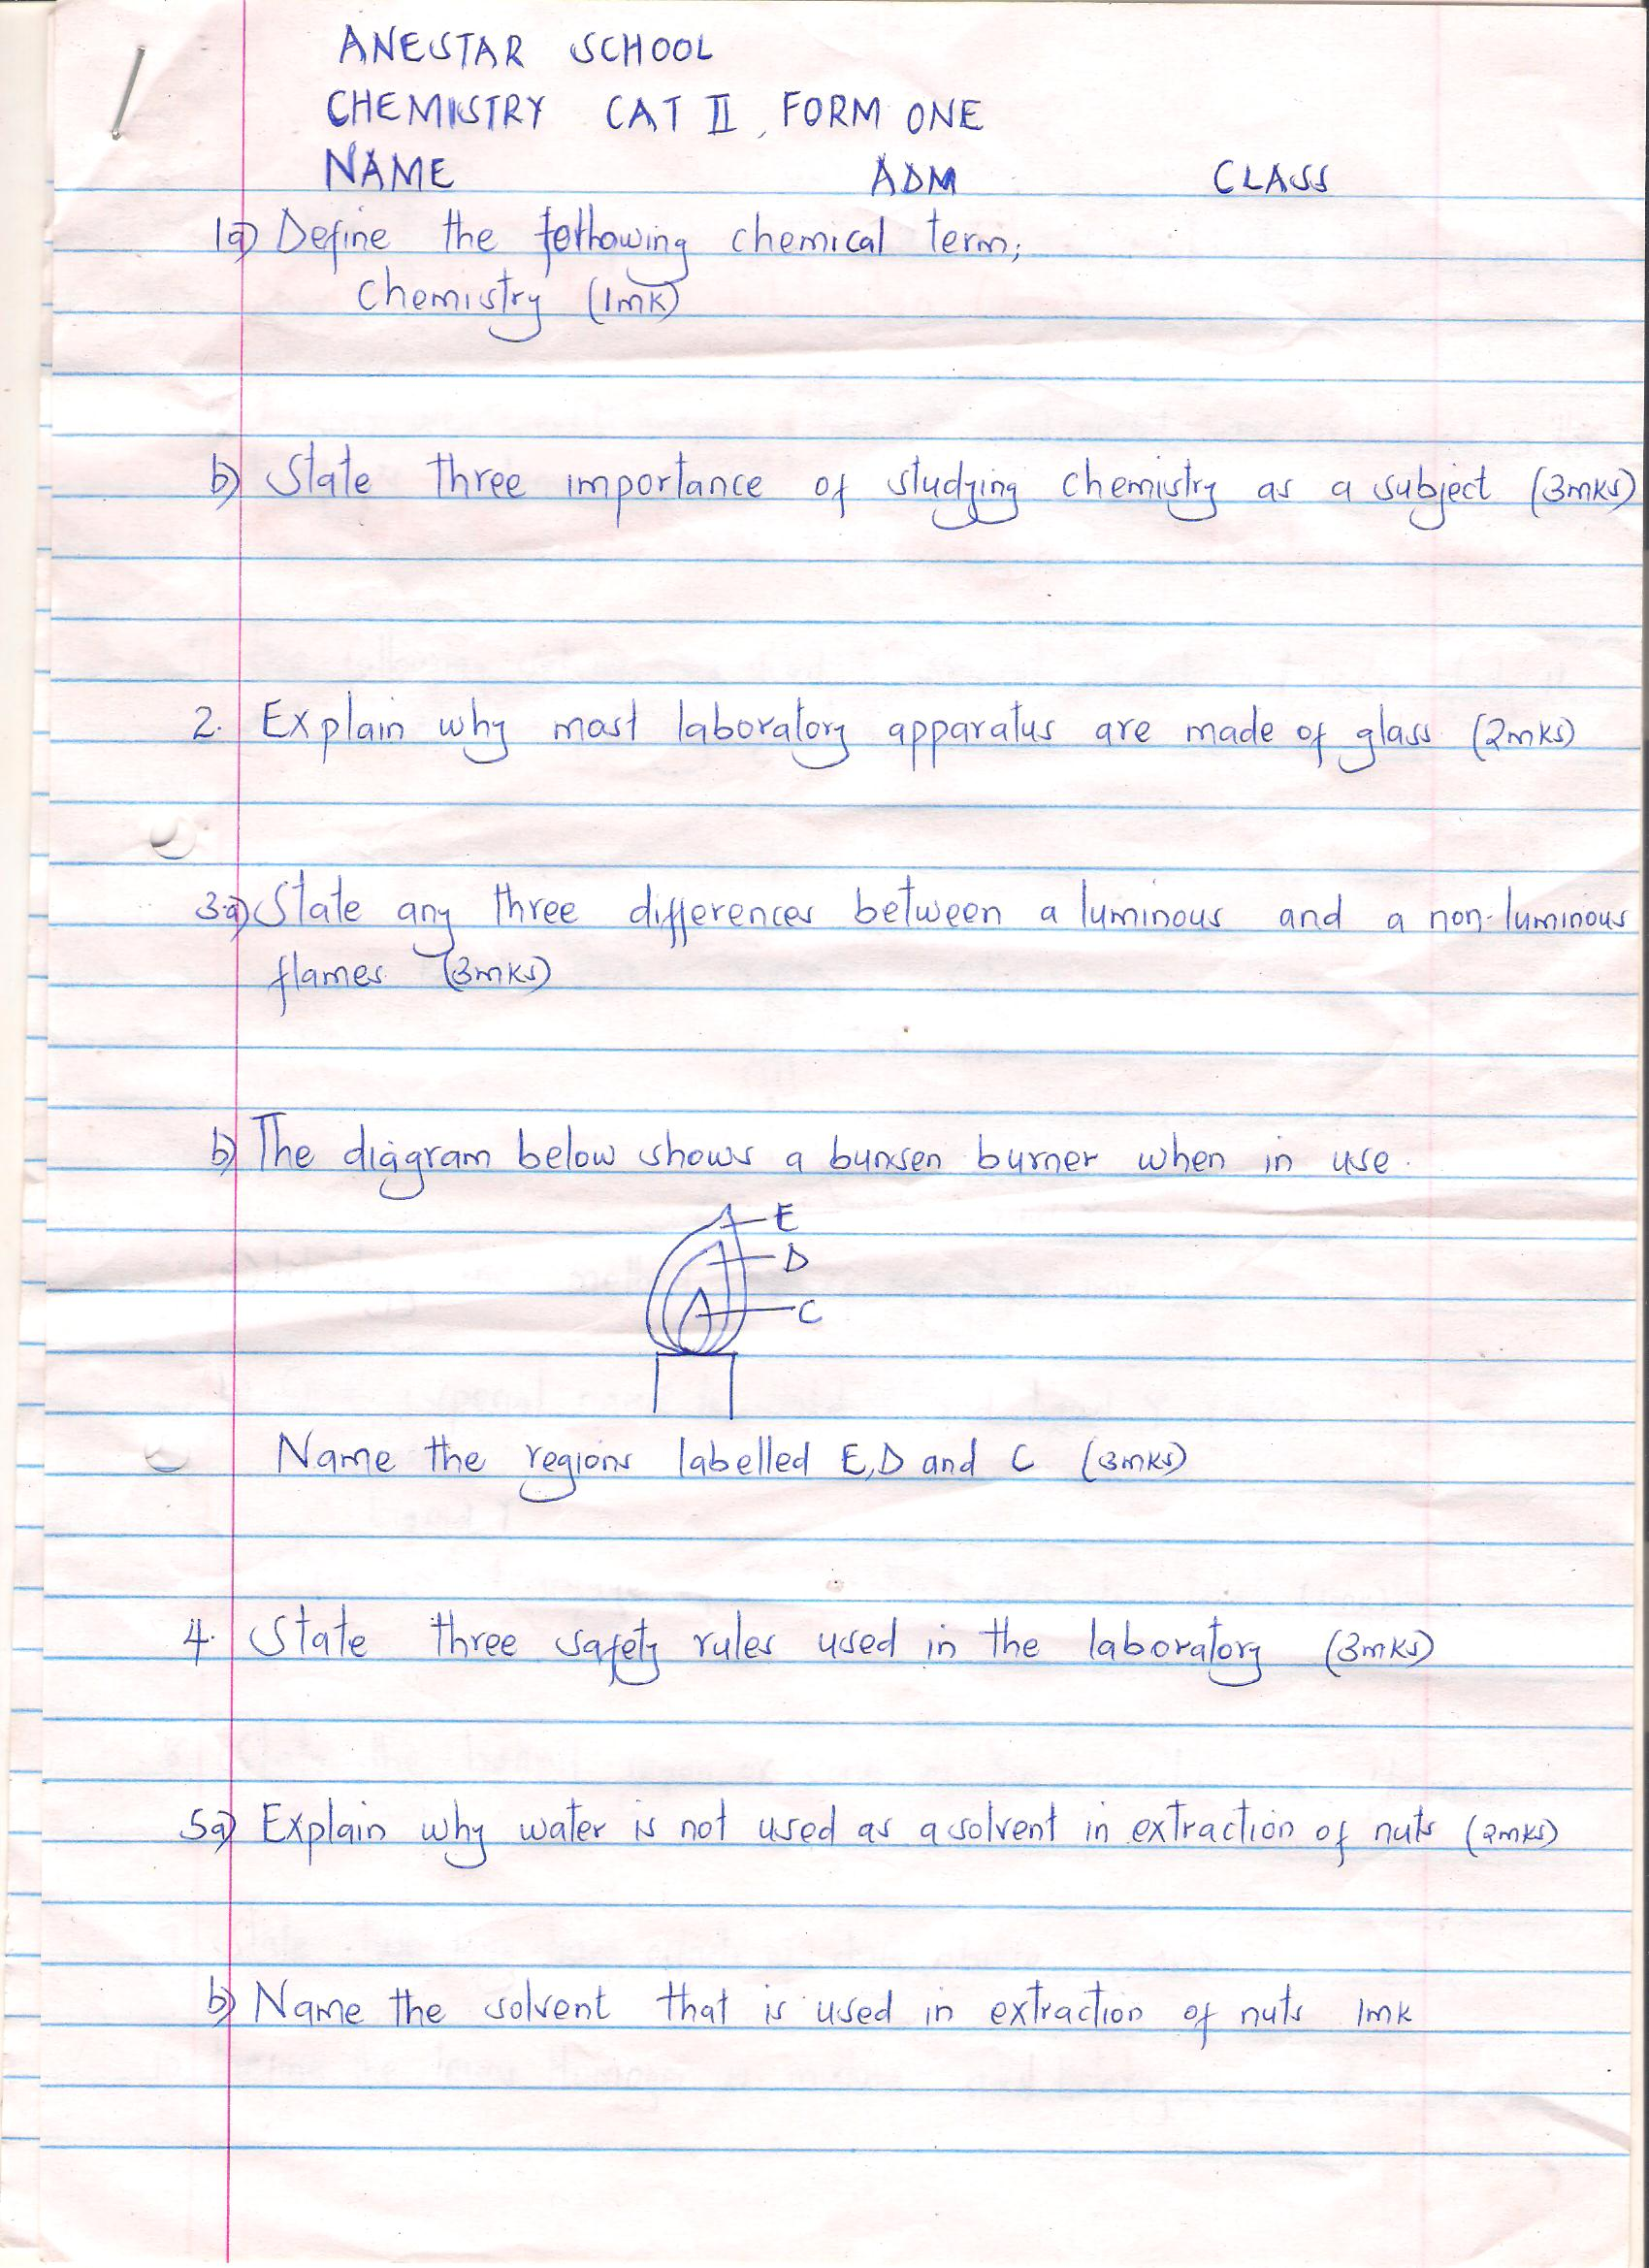 ANESTAR SCHOOL
CHEMISTRY CAT II, FORM ONE
NAME ADM CLASS
1a) Define the following chemical term;
Chemistry (1mk)
b) State three importance of studying chemistry as a subject (3mks)
2. Explain why most laboratory apparatus are made of glass (2mks)
3.a) State any three differences between a luminous and a non-luminous
flames (3mks)
b) The diagram below shows a bunsen burner when in use.
E
D
C
Name the regions labelled E,D and C (3mks)
4. State three safety rules used in the laboratory (3mks)
5a) Explain why water is not used as a solvent in extraction of nuts (2mks)
b) Name the solvent that is used in extraction of nuts 1mk